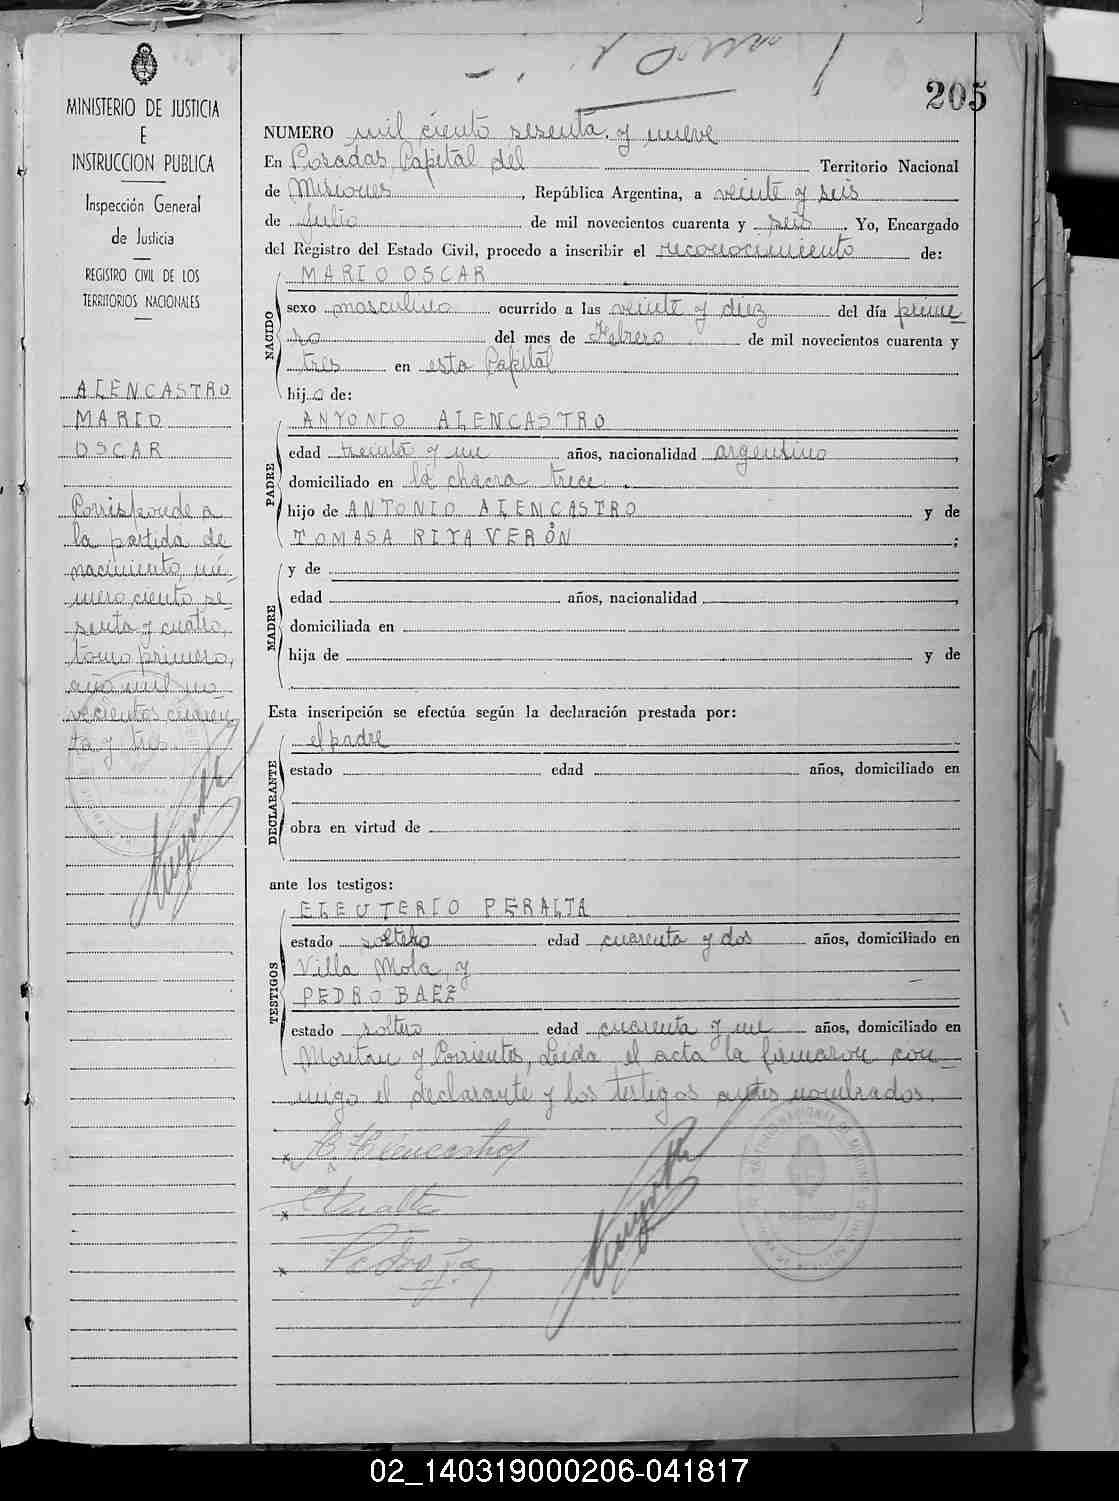 205
MINISTERIO DE JUSTICIA
E
INSTRUCCION PUBLICA
Inspección General
de Justicia
REGISTRO CIVIL DE LOS
TERRITORIOS NACIONALES
ALENCASTRO
MARIO
OSCAR
Corresponde a
la partida de
nacimiento, nú-
mero ciento se-
senta y cuatro,
tomo primero,
año mil no-
vecientos cuaren-
ta y tres
NUMERO mil ciento sesenta y nueve
En Posadas, Capital del Territorio Nacional
de Misiones, República Argentina, a veinte y seis
de Julio de mil novecientos cuarenta y seis. Yo, Encargado
del Registro del Estado Civil, procedo a inscribir el reconocimiento de:
NACIDO
MARIO OSCAR
sexo masculino ocurrido a las veinte y diez del día prime-
ro del mes de Febrero de mil novecientos cuarenta y
tres en esta Capital
hijo de:
PADRE
ANTONIO ALENCASTRO
edad treinta y un años, nacionalidad argentino,
domiciliado en la chacra trece.
hijo de ANTONIO ALENCASTRO y de
TOMASA RITA VERÓN;
MADRE
y de
edad años, nacionalidad ,
domiciliada en
hija de y de
Esta inscripción se efectúa según la declaración prestada por:
DECLARANTE
el padre
estado edad años, domiciliado en
obra en virtud de
ante los testigos:
TESTIGOS
ELEUTERIO PERALTA
estado soltero edad cuarenta y dos años, domiciliado en
Villa Mola, y
PEDRO BAEZ
estado soltero edad cuarenta y un años, domiciliado en
y Corrientes, Leída el acta la firmaron con-
migo el declarante y los testigos antes nombrados.
A. Alencastro
Peralta
Pedro
02_140319000206-041817